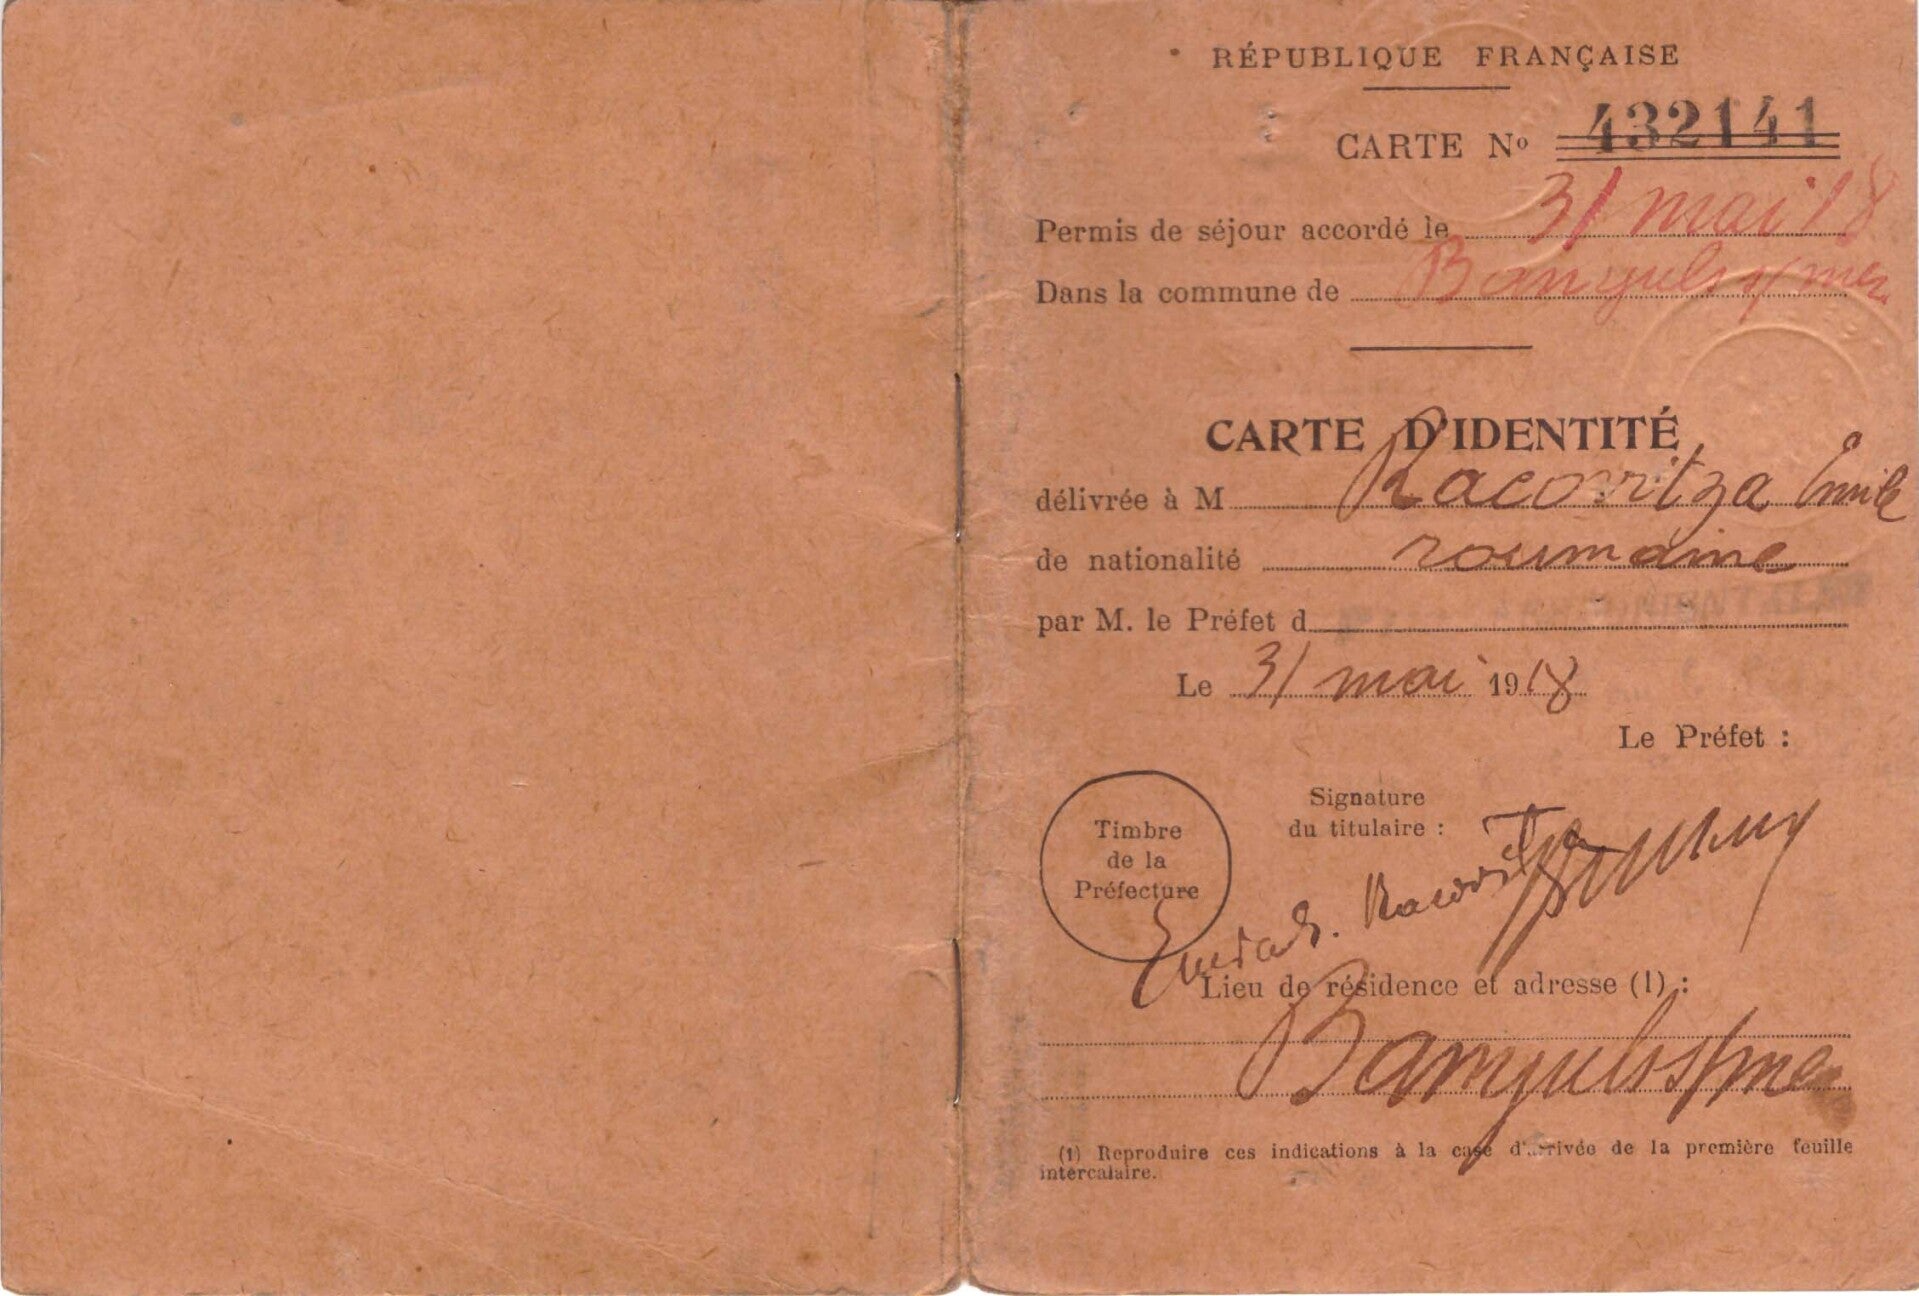 RÉPUBLIQUE FRANÇAISE
CARTE Nº 432141
Permis de séjour accordé le 31 mai 18
Dans la commune de Banyuls s/mer
CARTE D'IDENTITÉ
délivrée à M Racovitza Emile
de nationalité roumaine
par M. le Préfet d
Le 31 mai 1918
Le Préfet :
Signature
du titulaire :
Timbre
de la
Préfecture
Racovitza
Lieu de résidence et adresse (1) :
Banyuls s/mer
(1) Reproduire ces indications à la case d'arrivée de la première feuille
intercalaire.